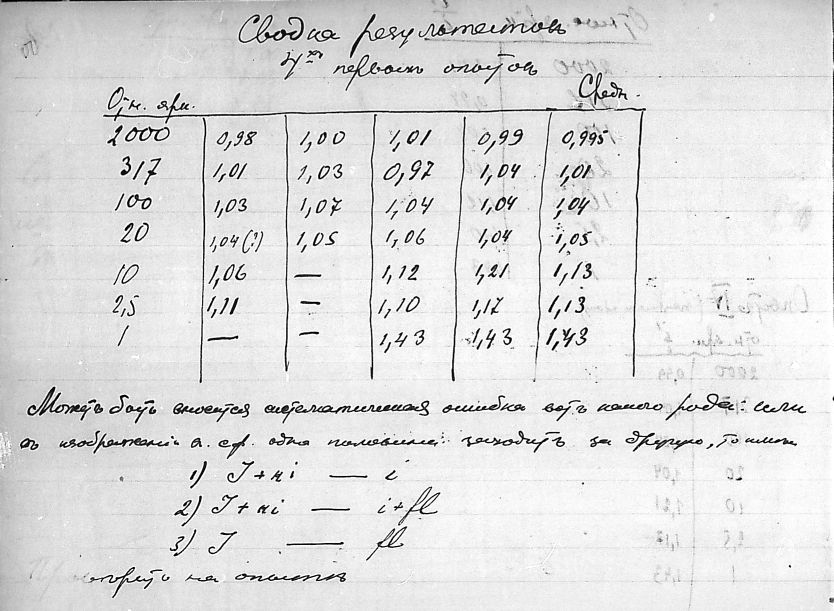 Сводка результатов
4х первых опытов
Отн. ярк. Средн.
2000 0,98 1,00 1,01 0,99 0,995
317 1,01 1,03 0,97 1,04 1,01
100 1,03 1,07 1,04 1,04 1,04
20 1,04(?) 1,05 1,06 1,04 1,05
10 1,06 — 1,12 1,21 1,13
2,5 1,11 — 1,10 1,17 1,13
1 — — 1,43 1,43 1,43
Можетъ быть вносится систематическая ошибка вотъ какого рода: если
въ изображенiи одна половина заходитъ за другую, то
1) J + — i
2) J + — i+fl
3) J — fl
на опытѣ